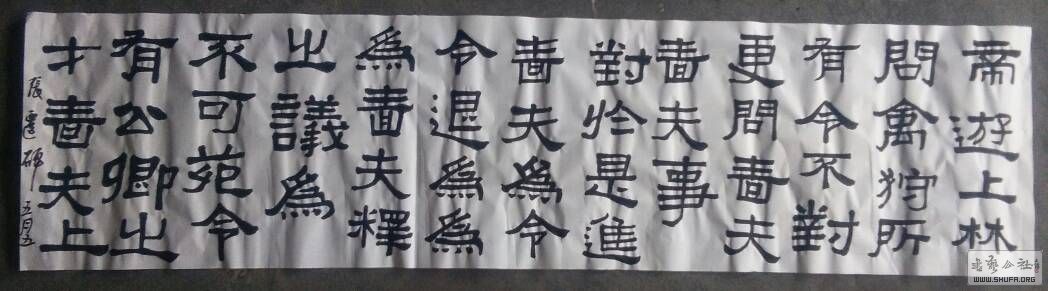 帝遊上林
問禽狩所
有令不對
更問嗇夫
嗇夫事
對於是進
嗇夫爲令
令退爲爲
爲嗇夫釋
之議爲
不可苑令
有公卿之
才嗇夫上
張遷碑 五月五
书艺公社
WWW.SHUFA.ORG